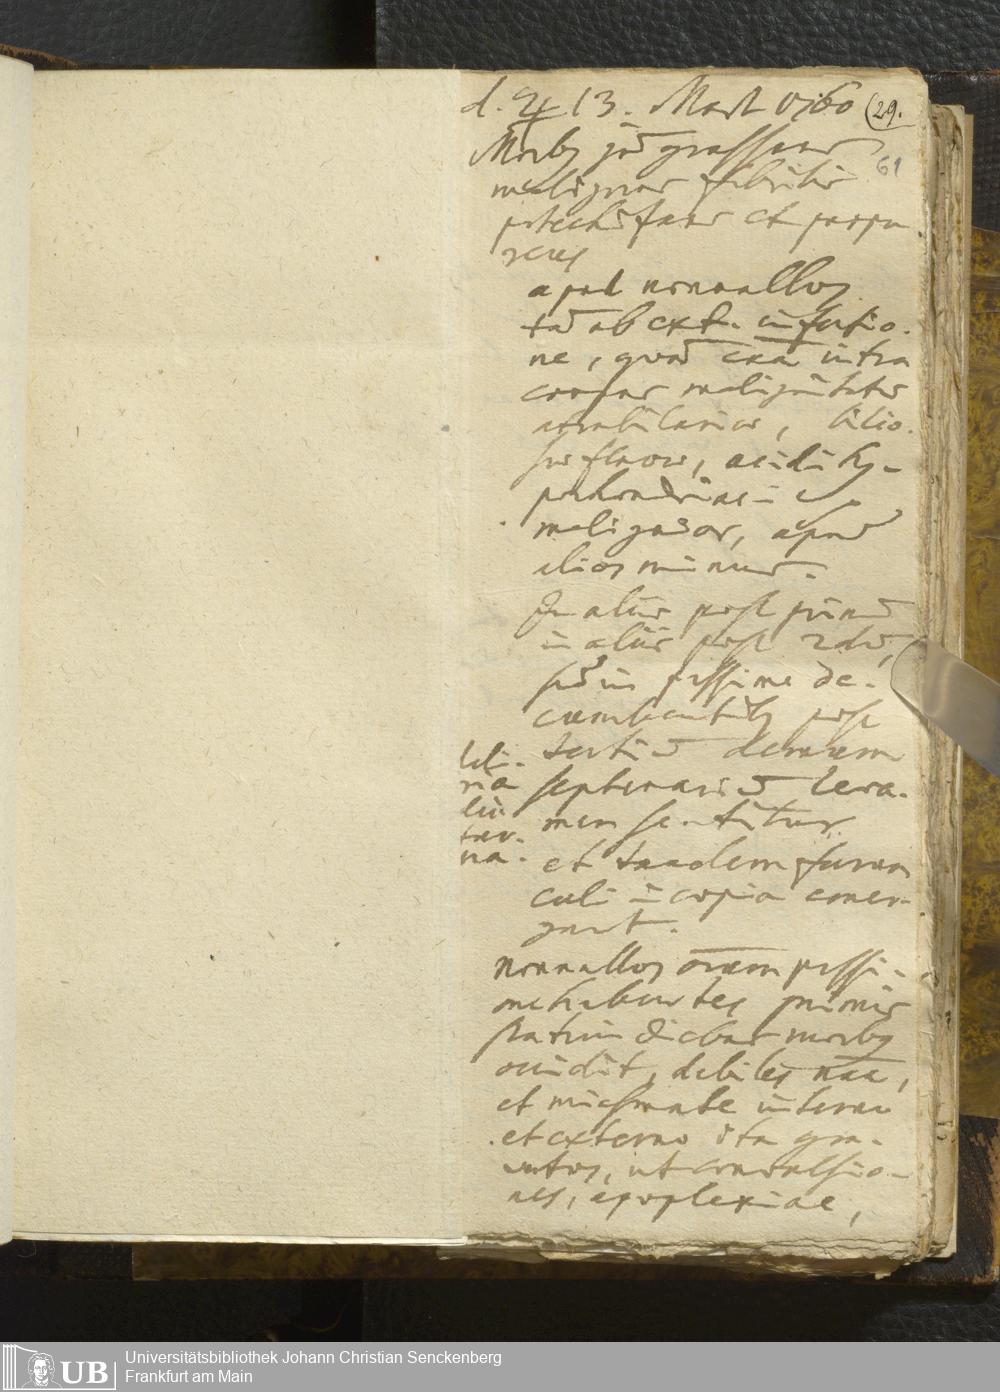 d. ♃ 13. Mart 1760 (29.
Morbq jam grassans 61
malignus febrilis
petechisans et purpu
raceus
apud nonnullos
tam ab ext. infectio.
ne, quam intra
corpus malignitate
atrabilarior, bilio.
sus flavus, acidi hy-
pochondriaci
malignior, apud
alios minus.
In aliis post primum
in aliis post 2dum,
sed in pessime de-
cumbentibq post
tertium demum
deli-
ria
diu
tur-
na.
septenarium leva-
men sentitur
et tandem furun
culi in copia emer-
gunt.
nonnullos pessi-
me habentes primis
statim diebus morbq
occidit, debiles
et miasmate interno
et externo ita gra-
vatos, ut convulsio-
nes, apoplexiae,
Universitätsbibliothek Johann Christian Senckenberg
Frankfurt am Main
UB